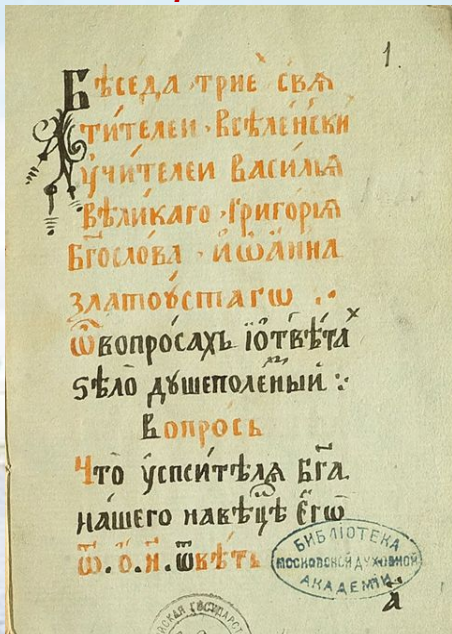 1.
Бѣседа трие свѧ
тителеи вселенски
ꙋчителеи василья
великаго григорїꙗ
бг҃ослова и иѡанна
златоꙋстагѡ
ѿ вопросахъ ї ѿтвѣтаⷯ
ѕѣло дꙋшеполеⷥныи
Вопросъ
Что ꙋспсителѧ бг҃а
нашего
ѿвѣтъ
БИБЛІОТЕКА
МОСКОВСКОЙ ДУХОВНОЙ
АКАДЕМІИ